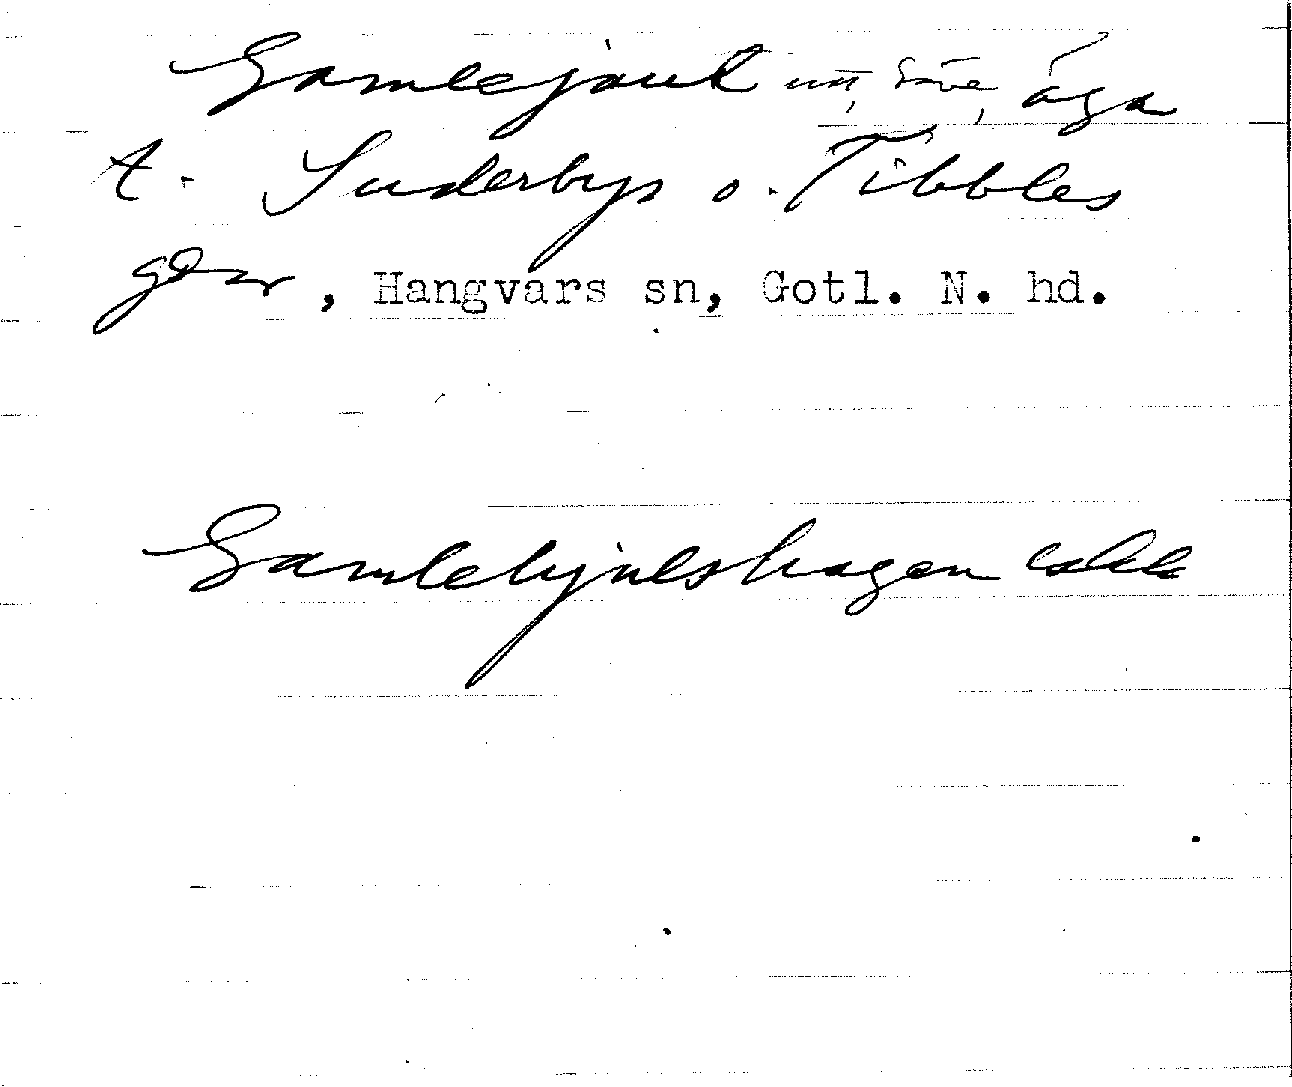 Gamlejaul äga
t. Suderbys o. Tibbles
gdar, Hangvars sn, Gotl. N. hd.
Gamlehjulshagen